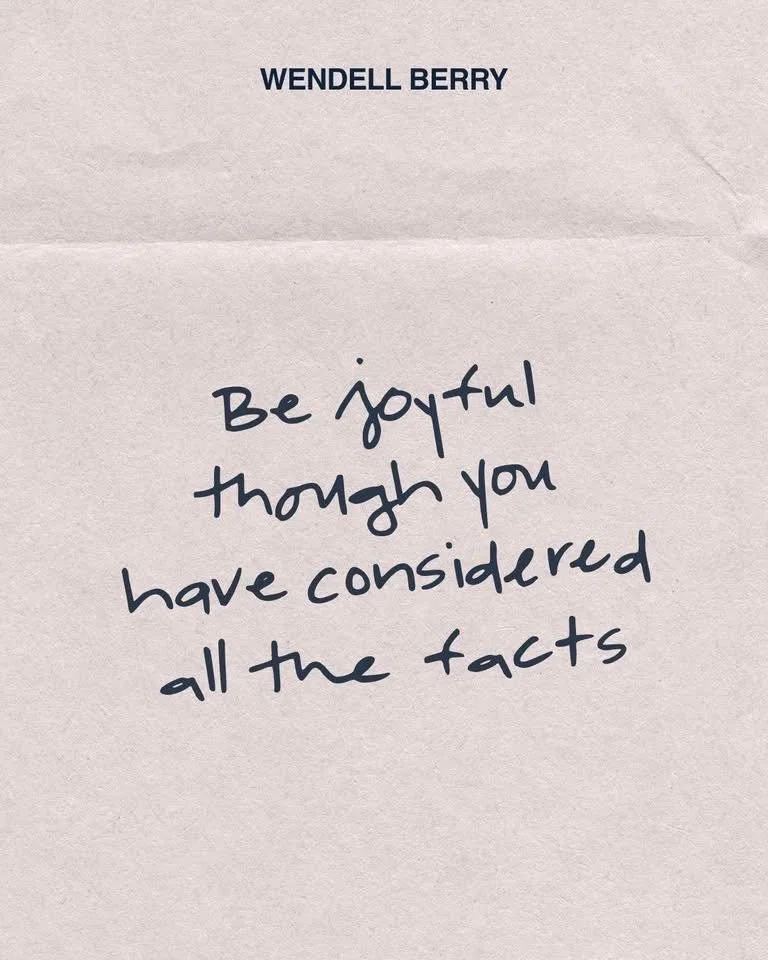 WENDELL BERRY
Be joyful
though you
have considered
all the facts